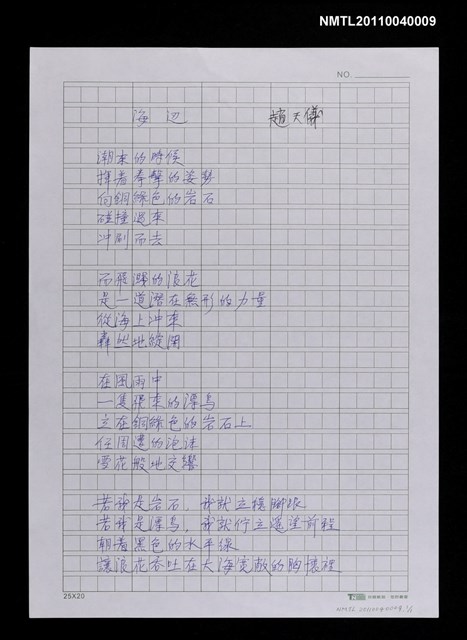 NMTL20110040009
NO.
海辺 趙天儀
潮來的時候
揮着拳擊的姿勢
向銅綠色的岩石
碰撞過來
冲刷而去
而飛騷的浪花
是一道潛在無形的力量
從海上冲來
轟然地綻開
在風雨中
一隻飛來的漂鳥
立在銅綠色的岩石上
任周邊的泡沫
雪花般地交響
若我是岩石,我就立穩腳跟
若我是漂鳥,我就佇立遙望前程
朝着黑色的水平線
讓浪花吞吐在大海寬敞的胸懷裡
25X20
NMTL20110040009 1/1